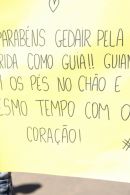 PARABÉNS GEDAIR PELA
RIDA COMO GUIA!! GUIAN
M OS PÉS NO CHÃO E
ESMO TEMPO COM O
CORAÇÃO!